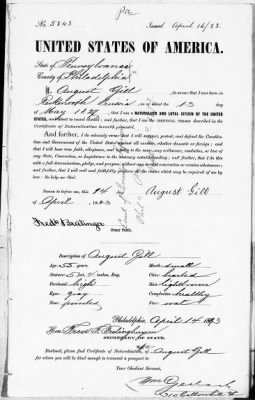 Pa
No. 5343 Issued April 16/83.
UNITED STATES OF AMERICA.
State of Pennsylvania
County of Philadelphia
I, August Gill, do swear that I was born in
Prussia, on or about the 13 day
of May 1827; that I am a NATURALIZED AND LOYAL CITIZEN OF THE UNITED
STATES, and about to travel abroad; and further, that I am the IDENTICAL PERSON described in the
Certificate of Naturalization herewith presented.
And further, I do solemnly swear that I will support, protect, and defend the Constitution
and Government of the United States against all enemies, whether domestic or foreign; and
that I will bear true faith, allegiance, and loyalty to the same, any ordinance, resolution, or law of
any State, Convention or Legislature to the contrary notwithstanding; and further, that I do this
with a full determination, pledge, and purpose, without any mental reservation or evasion whatsoever;
and further, that I will well and faithfully perform all the duties which may be required of me by
law: So help me God.
Sworn to before me, this 14 August Gill
of April, 1883
Notary Public.
Description of August Gill
Age: 55 Mouth: small
Stature: 5 feet 4 inches, Eng. Chin:
Forehead: high Hair: light brown
Eyes: gray Complexion: healthy
Nose: pointed Face: oval
Philadelphia, April 14 1883
Hon. Fred. T. Frelinghuysen
SECRETARY OF STATE.
Enclosed, please find Certificate of Naturalization of August Gill
for whom you will be kind enough to transmit a passport to
Your Obedient Servant,